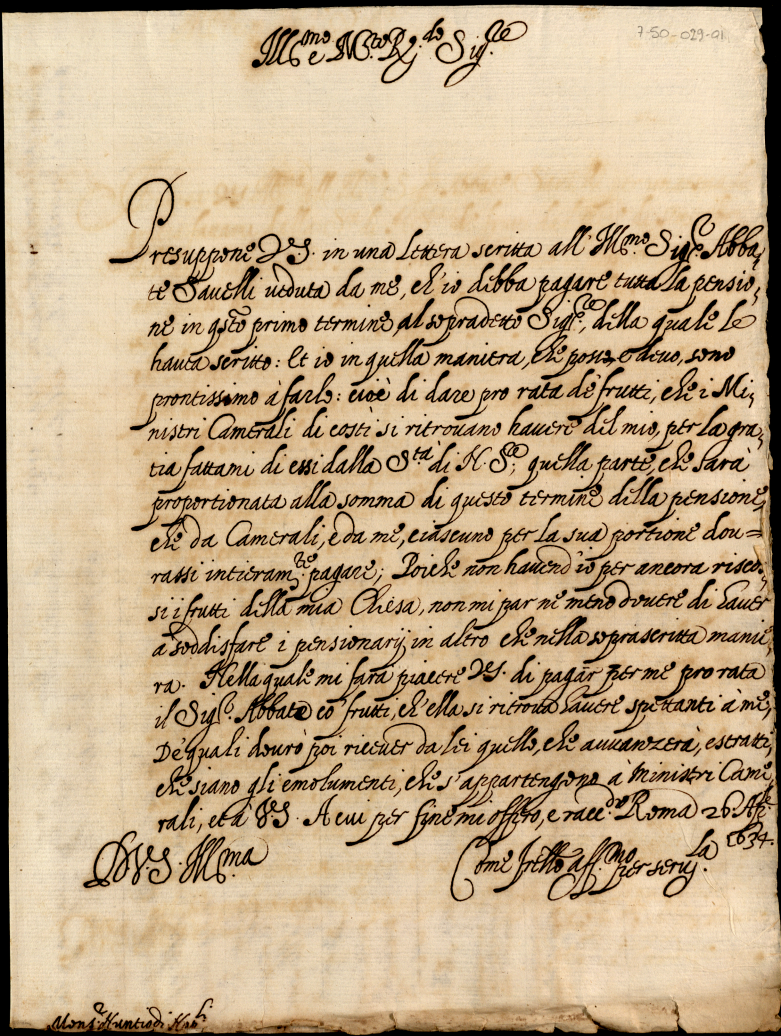 7-50-029-01
Ill.mo e M.to R.do Sig.re
Presuppone V.S. in una lettera scritta all' Ill.mo Sig.re Abba,
te Savelli veduta da me, ch' io debba pagare tutta la pensio,
ne in q.sto primo termine, al sopradetto Sig.re, della quale le
havea scritto: Et io in quella maniera, che posso, e devo, sono
prontissimo à farlo: cioè di dare pro rata de' frutti, che i Mi,
nistri Camerali di costì si ritrovano havere del mio, per la gra,
tia fattami di essi dalla S.tà di N. S.re, quella parte, che sarà
proportionata alla somma di questo termine della pensione,
che da Camerali, e da me, ciascuno per la sua portione dou=
rassi intieram.te pagare; Poiche non havend' io per ancora riscos,
si i frutti della mia Chiesa, non mi par ne meno dovere di haver
a soddisfare i pensionarij in altro che nella soprascritta manie,
ra. Nella quale mi farà piacere V.S. di pagar per me pro rata
il Sig.re Abbate co' frutti, ch' ella si ritrova havere spettanti à me,
De' quali dourò poi ricever da lei quello, che avvanzerà, estratti,
che siano gli emolumenti, che s' appartengono à Ministri Came,
rali, et à V.S. A cui per fine mi offero, e racc.do Roma 26 Ap.le
1634.
D V.S. Ill.ma
Come fr̃ello aff.mo per seru.la
Mons.r Nuntio di Nap.li